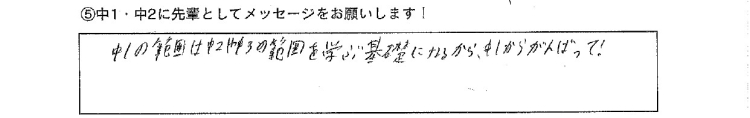 ⑤中1・中2に先輩としてメッセージをお願いします!
中1の範囲は中2や中3の範囲を学ぶ基礎になるから、中1からがんばって!